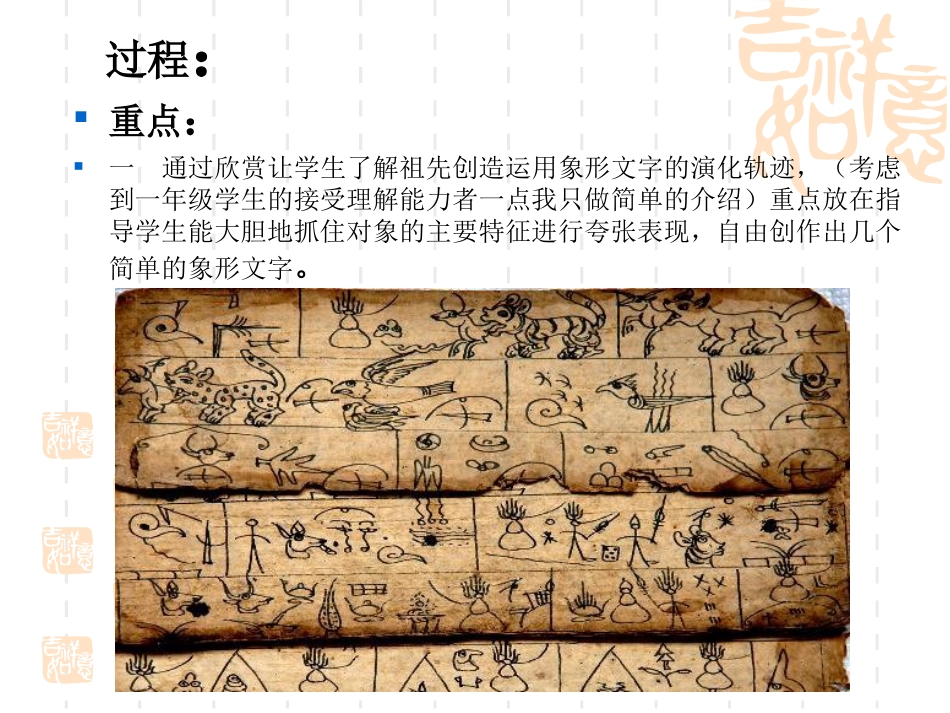 吉祥如意
过程：
重点：
一　通过欣赏让学生了解祖先创造运用象形文字的演化轨迹，（考虑
到一年级学生的接受理解能力者一点我只做简单的介绍）重点放在指
导学生能大胆地抓住对象的主要特征进行夸张表现，自由创作出几个
简单的象形文字。
吉祥如意
吉祥如意
吉祥如意